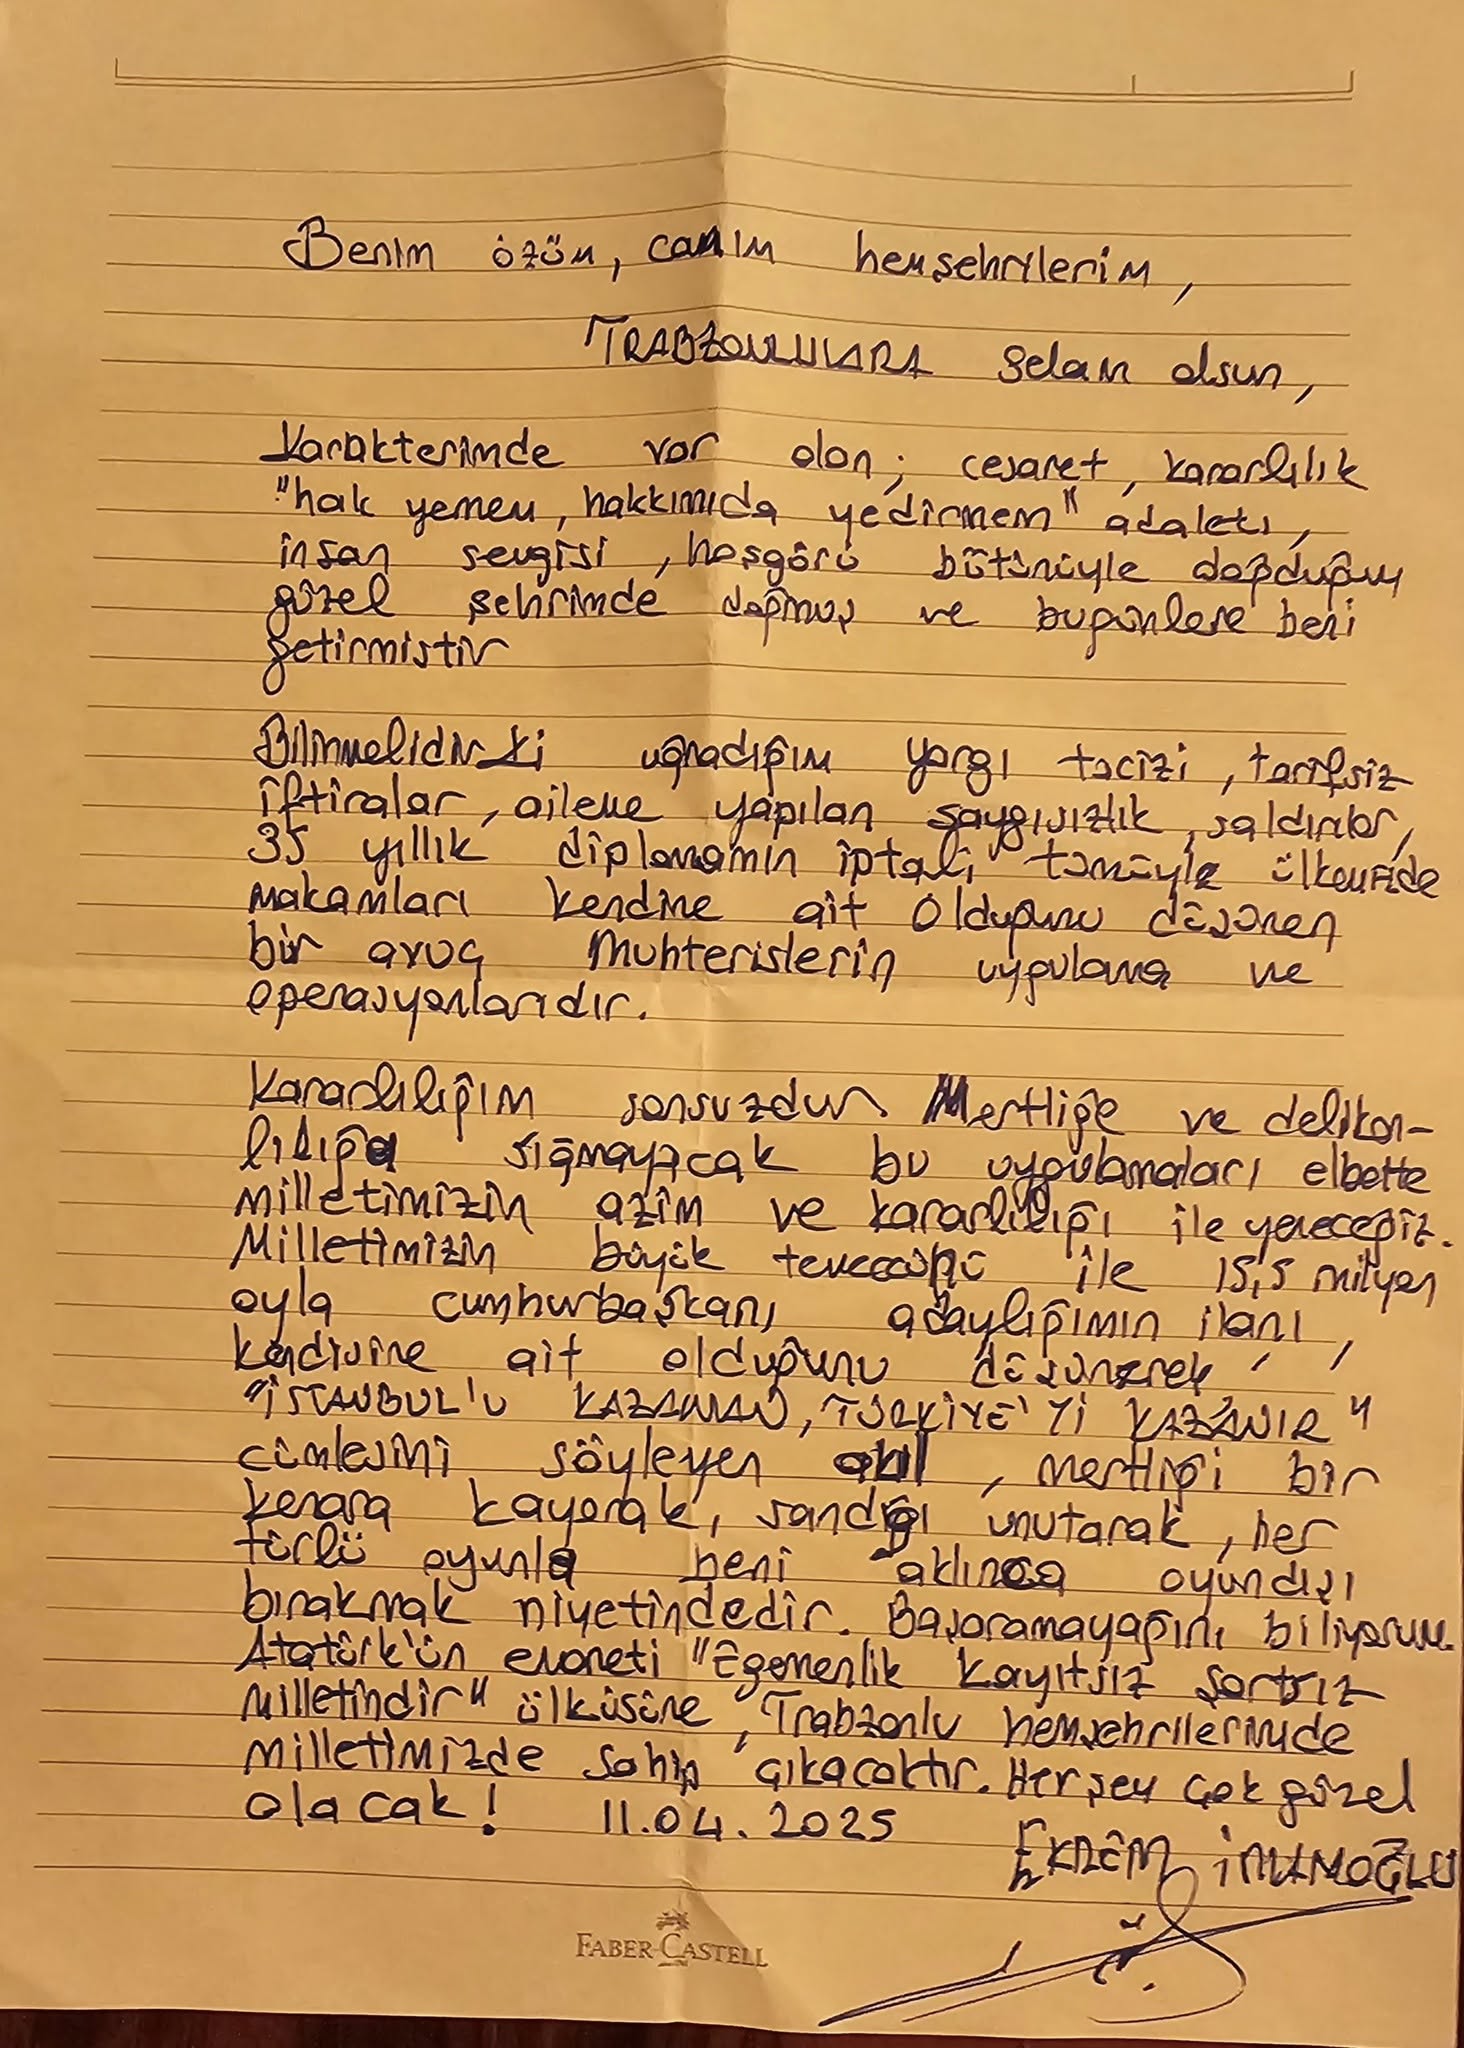 Benim özüm, canım hemşehrilerim,
TRABZONLULARA selam olsun,
Karakterimde var olan; cesaret, kararlılık
"hak yemem, hakkımıda yedirmem" adaleti,
insan sevgisi, hoşgörü bütünüyle doğduğum
güzel şehrimde doğmuş ve bugünlere beni
getirmiştir
Bilinmelidir ki uğradığım yargı tacizi, tarifsiz
iftiralar, aileme yapılan saygısızlık, saldırılar,
35 yıllık diplomamın iptali tümüyle ülkemizde
makamları kendine ait olduğunu düşünen
bir avuç muhterislerin uygulama ve
operasyonlarıdır.
Kararlılığım sonsuzdur. Mertliğe ve delikan-
lılığa sığmayacak bu uygulamaları elbette
milletimizin azim ve kararlılığı ile yeneceğiz.
Milletimizin büyük teveccühü ile 15,5 milyon
oyla cumhurbaşkanı adaylığımın ilanı,
kendisine ait olduğunu düşünerek
"İSTANBUL'U KAZANAN, TÜRKİYE'Yİ KAZANIR"
cümlesini söyleyen akıl, mertliği bir
kenara koyarak, sandığı unutarak, her
türlü oyunla beni aklınca oyundışı
bırakmak niyetindedir. Başaramayağını biliyorum.
Atatürk'ün emaneti "Egemenlik kayıtsız şartsız
milletindir" ülküsüne, Trabzonlu hemşehrilerimde
milletimizde sahip çıkacaktır. Herşey çok güzel
olacak! 11.04.2025
EKREM İMAMOĞLU
FABER-CASTELL